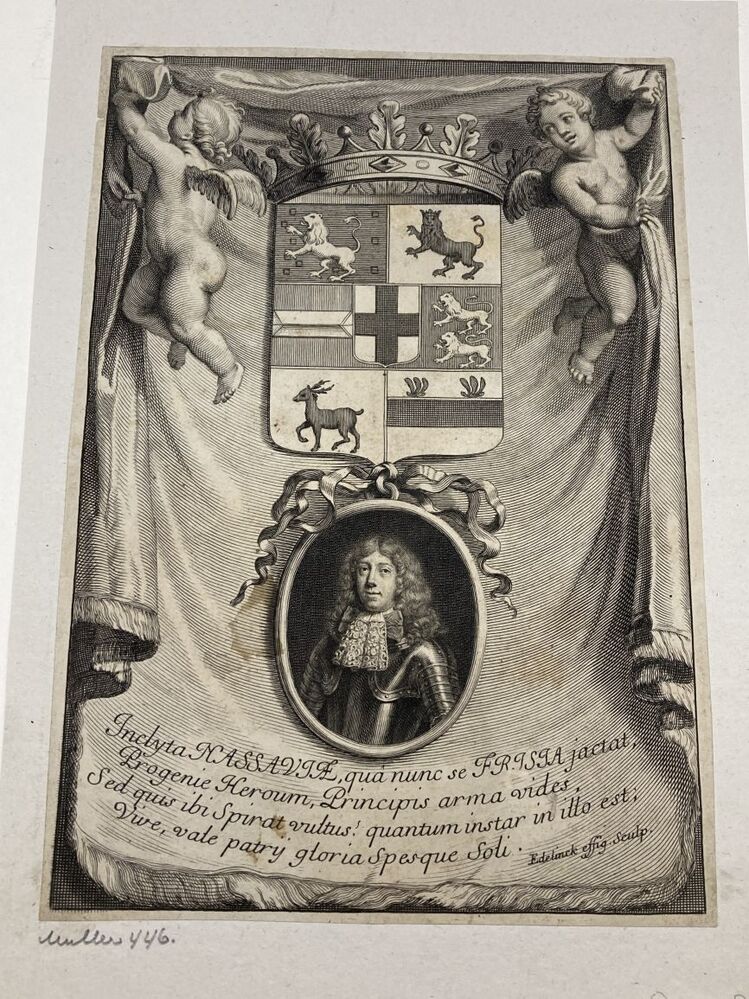 Inclyta NASSAVIÆ, quâ nunc se FRISIA jactat,
Progenie Heroum, Principis arma vides,
Sed quis ibi Spirat vultus! quantum instar in illo est;
Vive, vale patrÿ gloria Spesque Soli.
Edelinck effig. Sculp.
Muller 446.